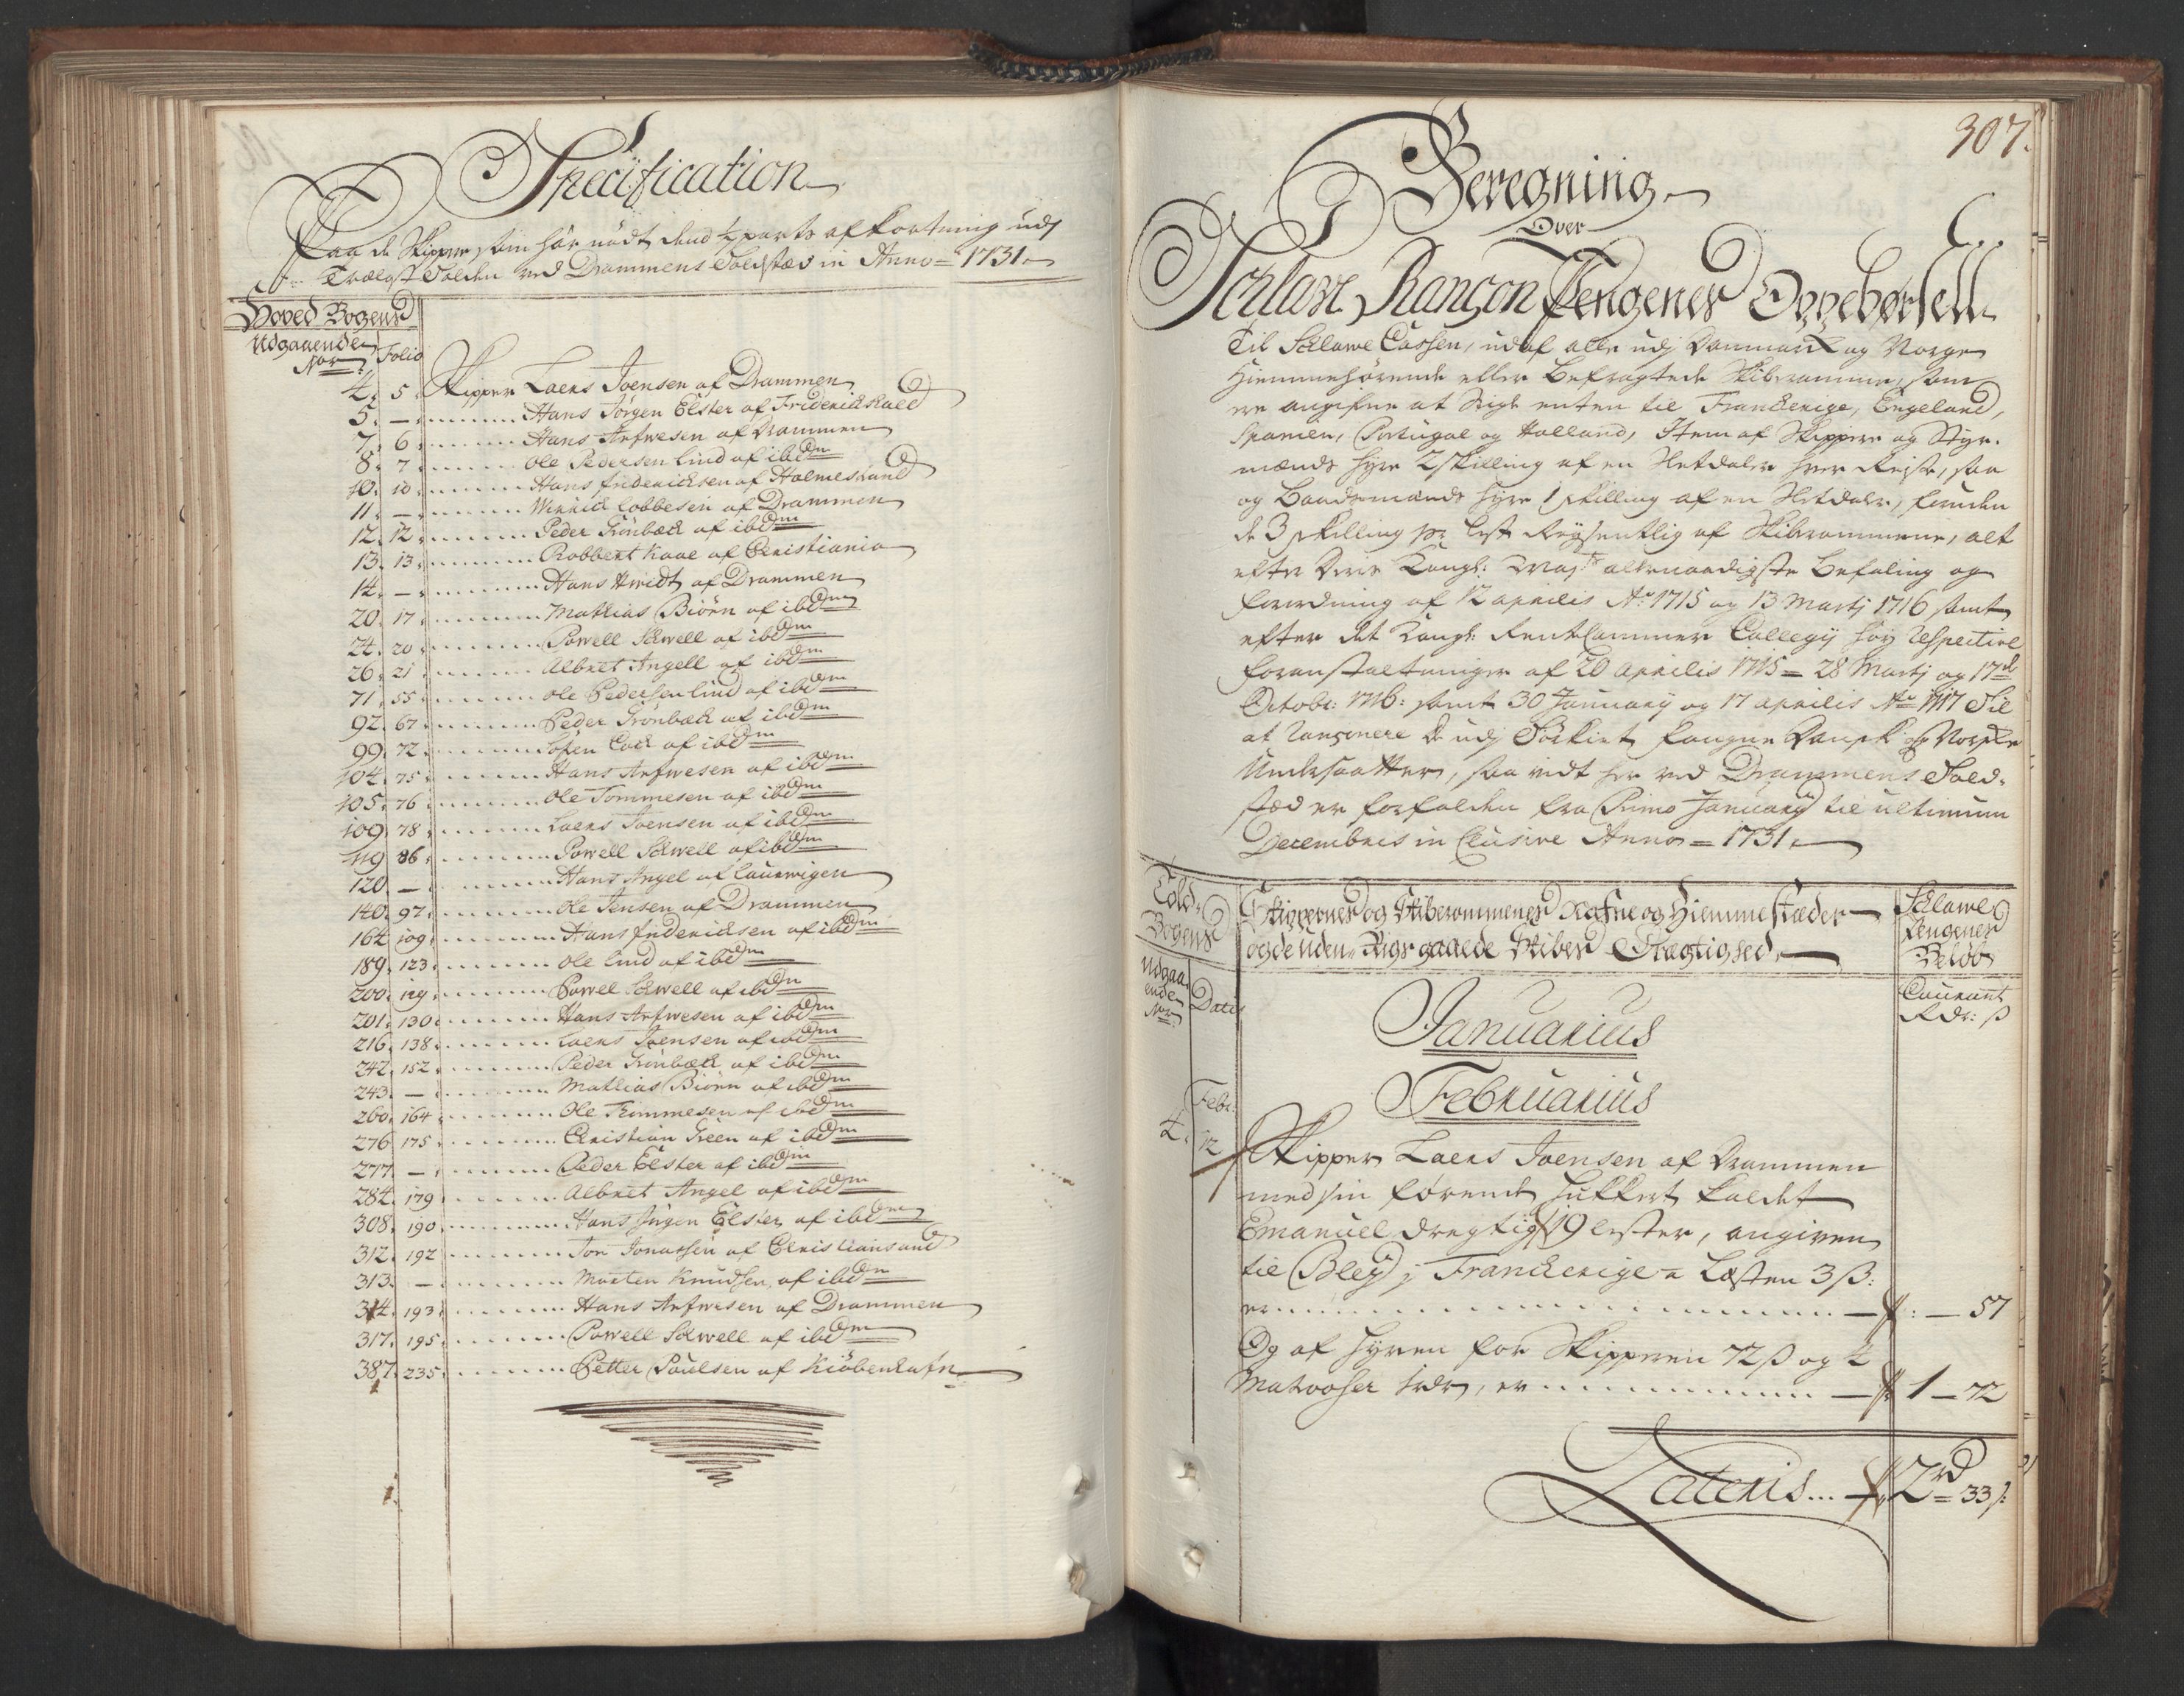 Specification
Paa de Skipper som har nødt dend ¼ parts afkortning udj
Trælast Tolden ved Drammens Toldstæd in Anno = 1731
Hoved Bogens
Udgaaende Nor | Folio
4. 5. Skipper Laers Joensen af Drammen
5. — Hans Jørgen Elster af Friderichshald
7. 6. Hans Arfwesen af Drammen
8. 7. Ole Pedersen Lind af ibdm
10. 10. Hans friderichsen af Holmestrand
11. — Winnich Cobbesen af Drammen
12. 12. Peder Grønbæch af ibdm
13. 13. Robbert Kaae af Christiania
14. — Hans Smidt af Drammen
20. 17. Mathias Biørn af ibdm
24. 20. Powell Schwell af ibdm
26. 21. Albret Angell af ibdm
71. 55. Ole Pedersen Lind af ibdm
92. 67. Peder Grønbæch af ibdm
99. 72. Cock af ibdm
104. 75. Hans Arfwesen af ibdm
105. 76. Ole Tommesen af ibdm
109. 78. Laers Joensen af ibdm
119. 86. Powell Schwell af ibdm
120. — Hans Angel af Laurwigen
140. 97. Ole Jensen af Drammen
164. 109. Hans friderichsen af ibdm
189. 123. Ole Lind af ibdm
200. 129. Powel Schwell af ibdm
201. 130. Hans Arfwesen af ibdm
216. 138. Laers Joensen af ibdm
242. 152. Peder Grønbæch af ibdm
243. — Mathias Biørn af ibdm
260. 164. Ole Tommesen af ibdm
276. 175. Christian Green af ibdm
277. — Peder Elster af ibdm
284. 179. Albret Angel af ibdm
308. 190. Hans Jürgen Elster af ibdm
312. 192. Jon Jonassen af Christiansand
313. — Morten Knudsen af ibdm
314. 193. Hans Arfwesen af Drammen
317. 195. Powell Schwell af ibdm
387. 235. Petter Poulsen af Kiøbenhafn
307.
Beregning
Over
Schlave Rançon Pengenes Oppebørsell
Til Schlawe Cassen, udaf alle udj Danmarck og Norge
Hiemmehørende eller Befragtede Skiberomme, som
ere angifne at Seigle enten til Franckerige, Engeland,
Spanien, Portugal og Holland, Item af Skippere og Styr-
mænds hyre 2 skilling af en Sletdaler hver Reise, saa
og Baadsmænds hyre 1 skilling af en Sletdaler, foruden
de 3 skilling pr lest af Skiberommene, alt
efter Deris Kongl: Mayts allernaadigste Befaling og
forordning af 12 aprilis Ao 1715 og 13 Martj 1716 samt
efter det Kongl: RenteCammer Collegij høy respective
foranstaltninger af 20 aprilis 1715 = 28 Martj og 17de
Octobr: 1716: samt 30 January og 17 aprilis Ao 1717 Til
at rançonere de udj Tørkiet fangne Dansk og Norske
Undersaatter, saa vidt her ved Drammens Told-
stæd er forfalden fra Primo January til ultimum
Decembris in Clusive Anno = 1731
Told Bogens
Skippernes og Skiberommenes Nafne og Hiemmestæder
og de Uden-Rigs gaaede Skibes Drægtighed
Schlawe Pengenes Beløb
Udgaaende Nor | Dato
Courant Rdr: ß
Januarius
Februarius
Febr:
4. 12 Skipper Laers Joensen af Drammen
med sin førende Hukkert kaldet
Emanuel drægtig 19 lester, angiven
til Bley j Franckerige a Læsten 3 ß:
er — : — 57
Og af hyren for Skipperen 72 ß og 4
Matroser 1rdr, er — 1 — 72
Lateris... 2rd = 33 ß